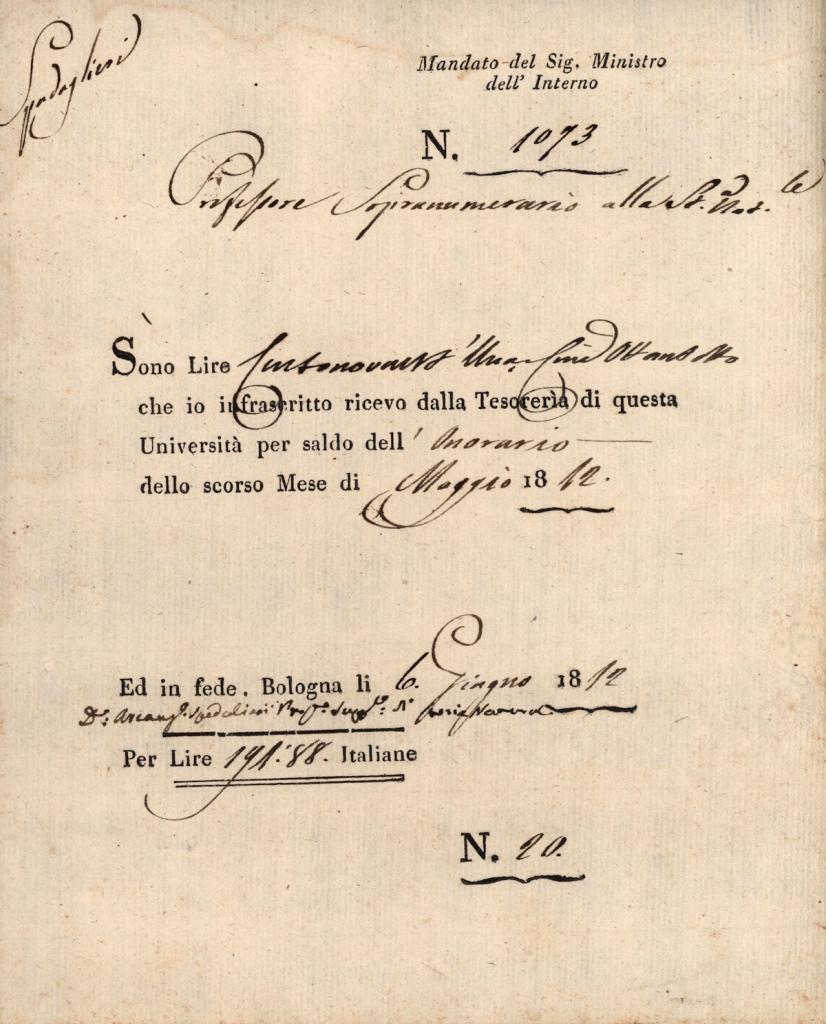 Spedaglieri
Mandato del Sig. Ministro
dell' Interno
N. 1073
Professore Sopranumerario alla St. Nat.le
Sono Lire Centonovant'Una, Cmi Ottantotto
che io infrascritto ricevo dalla Tesorerìa di questa
Università per saldo dell' Onorario
dello scorso Mese di Maggio 1812.
Ed in fede. Bologna li 6. Giugno 1812
Dr. Arcang.o Spedalieri Prof.e
Per Lire 191:88. Italiane
N. 20.